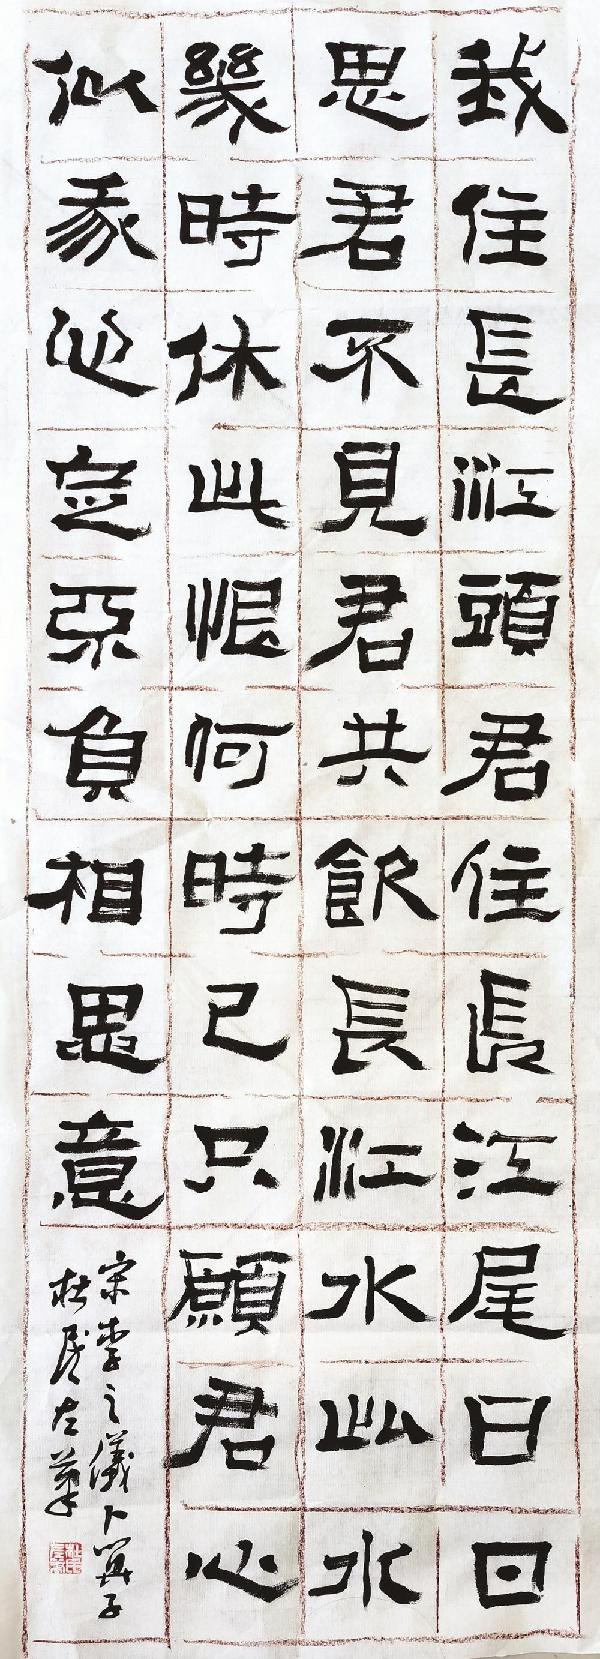 我住長江頭君住長江尾日日
思君不見君共飲長江水此水
幾時休此恨何時已只願君心
似我心定不負相思意
宋李之儀卜算子
杜民左筆